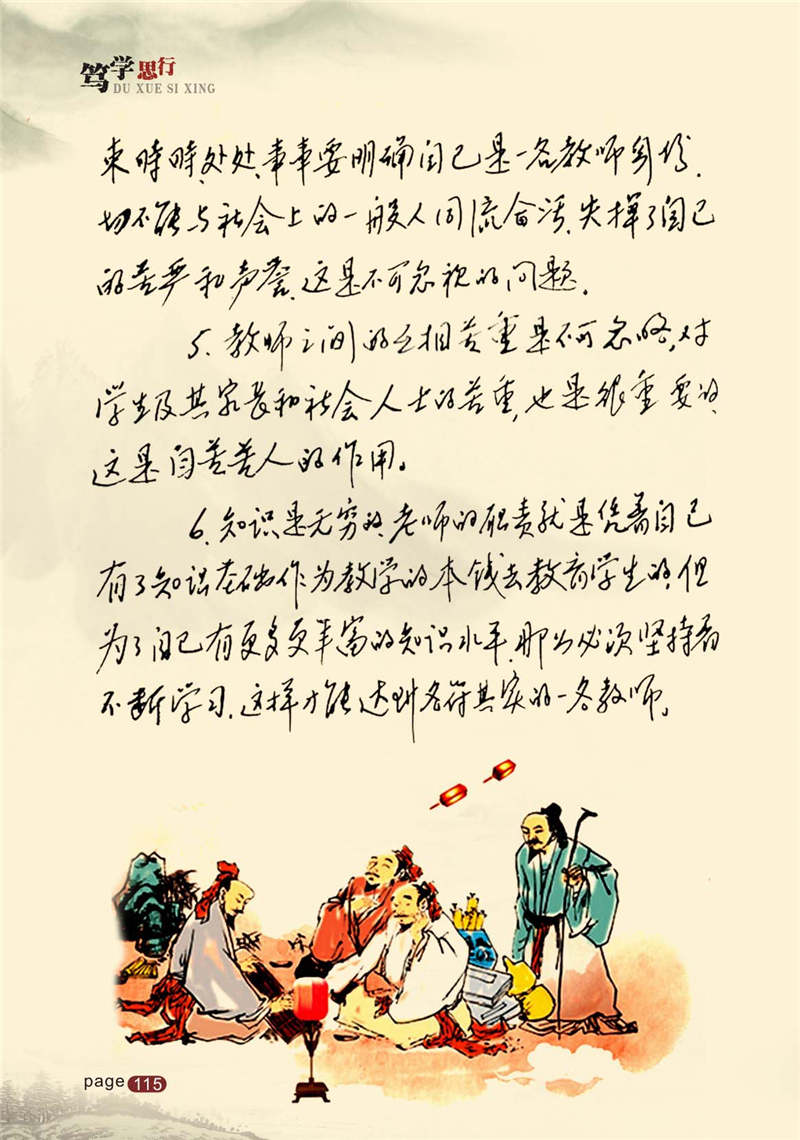 笃学思行
DU XUE SI XING
来时时,处处,事事要明确自己是一名教师身份,
切不能与社会上的一般人同流合污,失掉了自己
的尊严和声誉,这是不可忽视的问题.
5、教师之间的互相尊重是不可忽略,对
学生及其家长和社会人士的尊重,也是很重要的,
这是自尊尊人的作用。
6、知识是无穷的,老师的职责就是凭着自己
有了知识基础作为教学的本钱去教育学生的,但
为了自己有更多更丰富的知识水平,那么必须坚持着
不断学习,这样才能达到名符其实的一名教师。
page 115